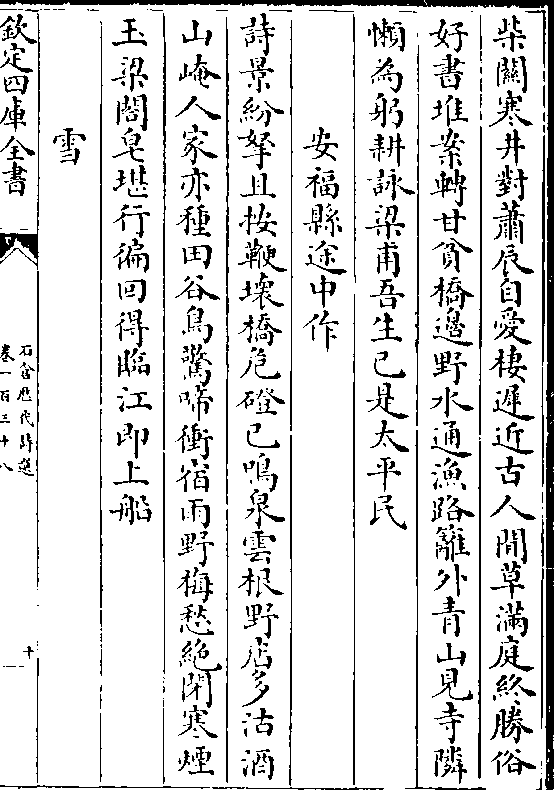 柴關寒井對蕭辰自愛棲遲近古人閒草滿庭終勝俗
好書堆案轉甘貧橋邉野水通漁路籬外青山見寺隣
懶為躬耕詠梁甫吾生已是太平民
安福縣途中作
詩景紛拏且按鞭壞橋危磴已鳴泉雲根野店多沽酒
山崦人家亦種田谷鳥驚啼衝宿雨野梅愁絶閉寒煙
玉梁閤皂堪行徧回得臨江即上船
雪
欽定四庫全書
石倉歷代詩選
卷一百三十八
十